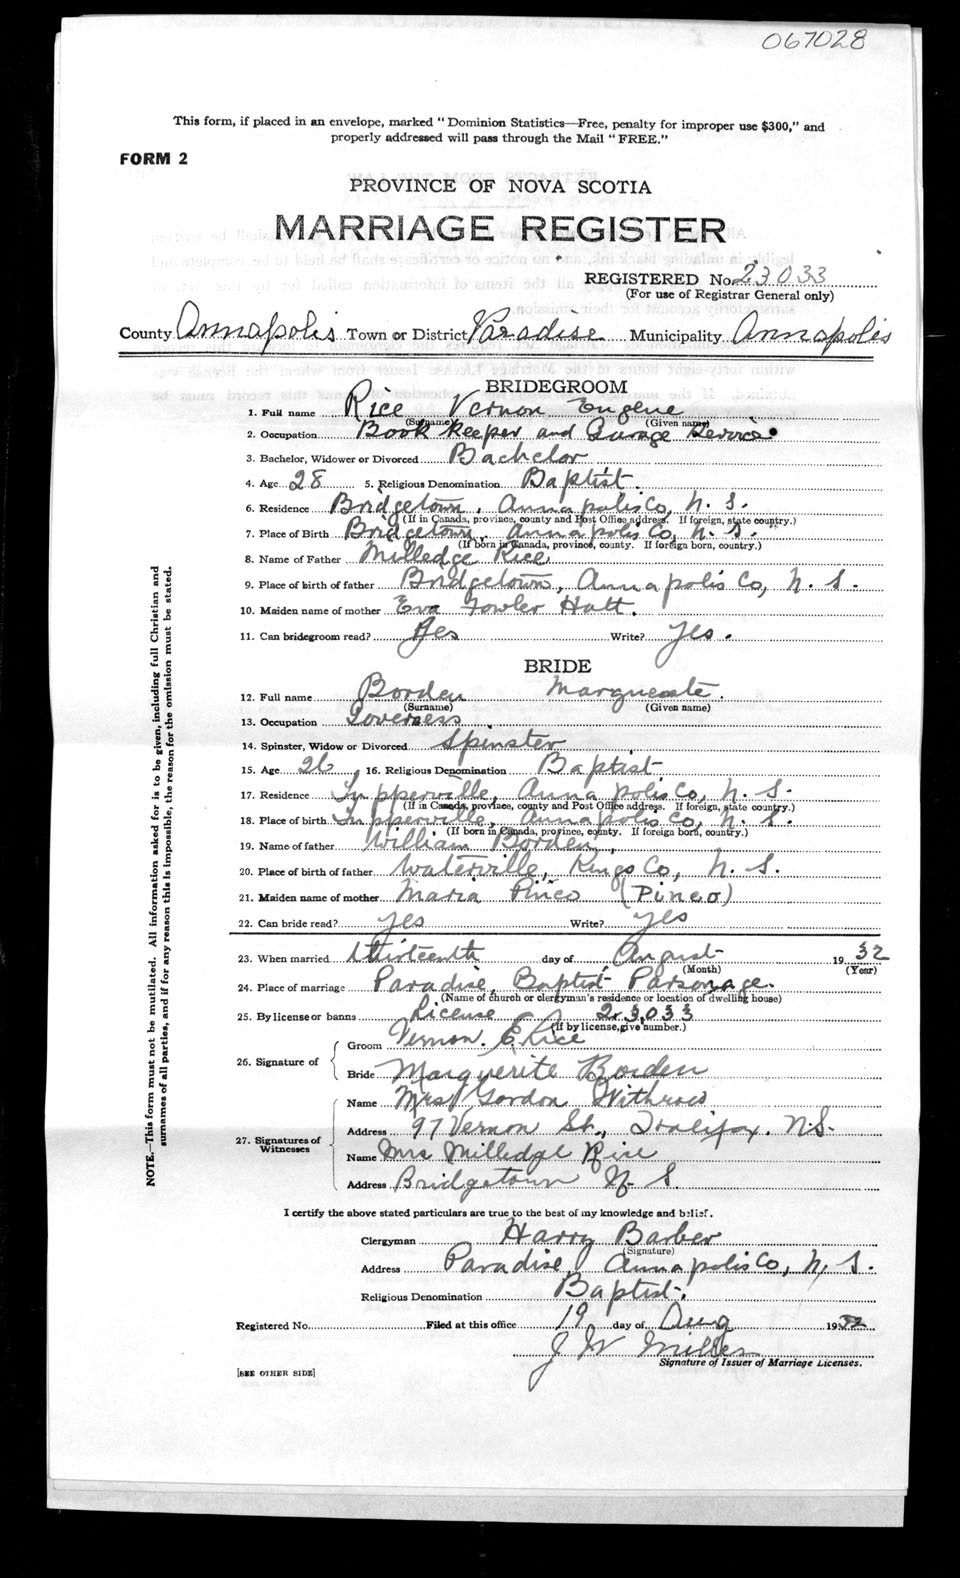 067028
This form, if placed in an envelope, marked " Dominion Statistics—Free, penalty for improper use $300," and
properly addressed will pass through the Mail " FREE."
FORM 2
PROVINCE OF NOVA SCOTIA
MARRIAGE REGISTER
REGISTERED No. 23033
(For use of Registrar General only)
County Annapolis Town or District Paradise Municipality Annapolis
BRIDEGROOM
1. Full name Rice Vernon Eugene
(Surname) (Given name)
2. Occupation Book Keeper and Garage Service
3. Bachelor, Widower or Divorced Bachelor
4. Age 28 5. Religious Denomination Baptist.
6. Residence Bridgetown, Annapolis Co, N. S.
(If in Canada, province, county and Post Office address. If foreign, state country.)
7. Place of Birth Bridgetown, Annapolis Co, N. S.
(If born in Canada, province, county. If foreign born, country.)
8. Name of Father Milledge Rice
9. Place of birth of father Bridgetown, Annapolis Co, N. S.
10. Maiden name of mother Eva Fowler Hatt.
11. Can bridegroom read? Yes Write? Yes.
BRIDE
12. Full name Borden Marguerite.
(Surname) (Given name)
13. Occupation Governess
14. Spinster, Widow or Divorced Spinster
15. Age 26, 16. Religious Denomination Baptist.
17. Residence Tupperville, Annapolis Co, N. S.
(If in Canada, province, county and Post Office address. If foreign, state country.)
18. Place of birth Tupperville, Annapolis Co, N. S.
(If born in Canada, province, county. If foreign born, country.)
19. Name of father William Borden,
20. Place of birth of father Waterville, Kings Co, N. S.
21. Maiden name of mother Maria Pineo (Pineo)
22. Can bride read? Yes Write? Yes
23. When married thirteenth day of August 1932
(Month) (Year)
24. Place of marriage Paradise, Baptist Parsonage.
(Name of church or clergyman's residence or location of dwelling house)
25. By license or banns License 23033
(If by license, give number.)
26. Signature of
Groom Vernon. E. Rice
Bride Marguerite Borden
27. Signatures of Witnesses
Name Mrs Gordon Withrow
Address 97 Vernon St., Halifax. N.S.
Name Mrs Milledge Rice
Address Bridgetown N. S.
I certify the above stated particulars are true to the best of my knowledge and belief.
Clergyman Harry Barber
(Signature)
Address Paradise, Annapolis Co, N. S.
Religious Denomination Baptist.
Registered No. Filed at this office 19 day of Aug 1932
J W Miller
Signature of Issuer of Marriage Licenses.
[SEE OTHER SIDE]
NOTE.—This form must not be mutilated. All information asked for is to be given, including full Christian and
surnames of all parties, and if for any reason this is impossible, the reason for the omission must be stated.